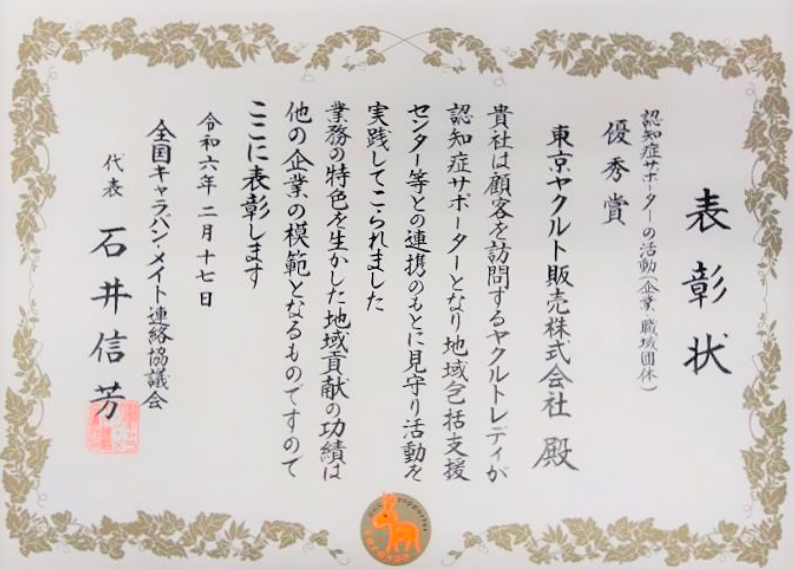 表彰状
認知症サポーターの活動(企業・職域団体)
優秀賞
東京ヤクルト販売株式会社 殿
貴社は顧客を訪問するヤクルトレディが
認知症サポーターとなり地域包括支援
センター等との連携のもとに見守り活動を
実践してこられました
業務の特色を生かした地域貢献の功績は
他の企業の模範となるものですので
ここに表彰します
令和六年二月十七日
全国キャラバン・メイト連絡協議会
代表 石井信芳
supporter
caravan